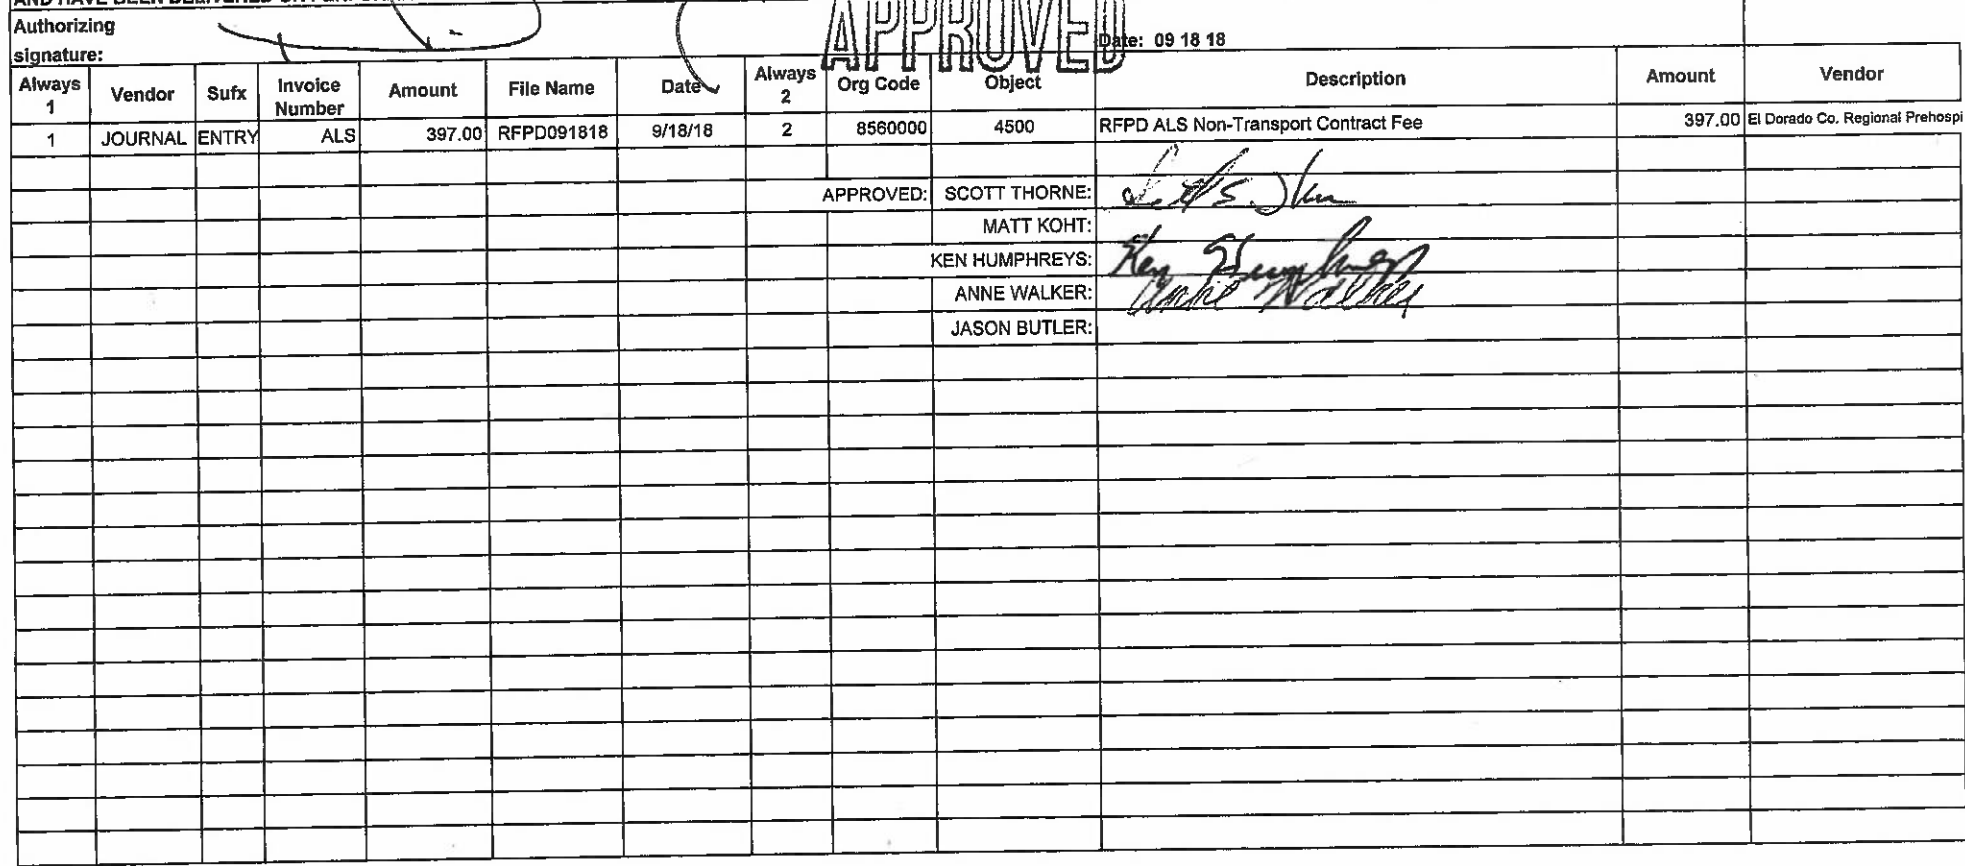 AND HAVE BEEN DELIVERED
Authorizing
signature:
APPROVED
Date: 09 18 18
Always 1 Vendor Sufx Invoice Number Amount File Name Date Always 2 Org Code Object Description Amount Vendor
1 JOURNAL ENTRY ALS 397.00 RFPD091818 9/18/18 2 8560000 4500 RFPD ALS Non-Transport Contract Fee 397.00 El Dorado Co. Regional Prehospi
APPROVED: SCOTT THORNE:
MATT KOHT:
KEN HUMPHREYS: Ken Humphreys
ANNE WALKER: Anne Walker
JASON BUTLER: